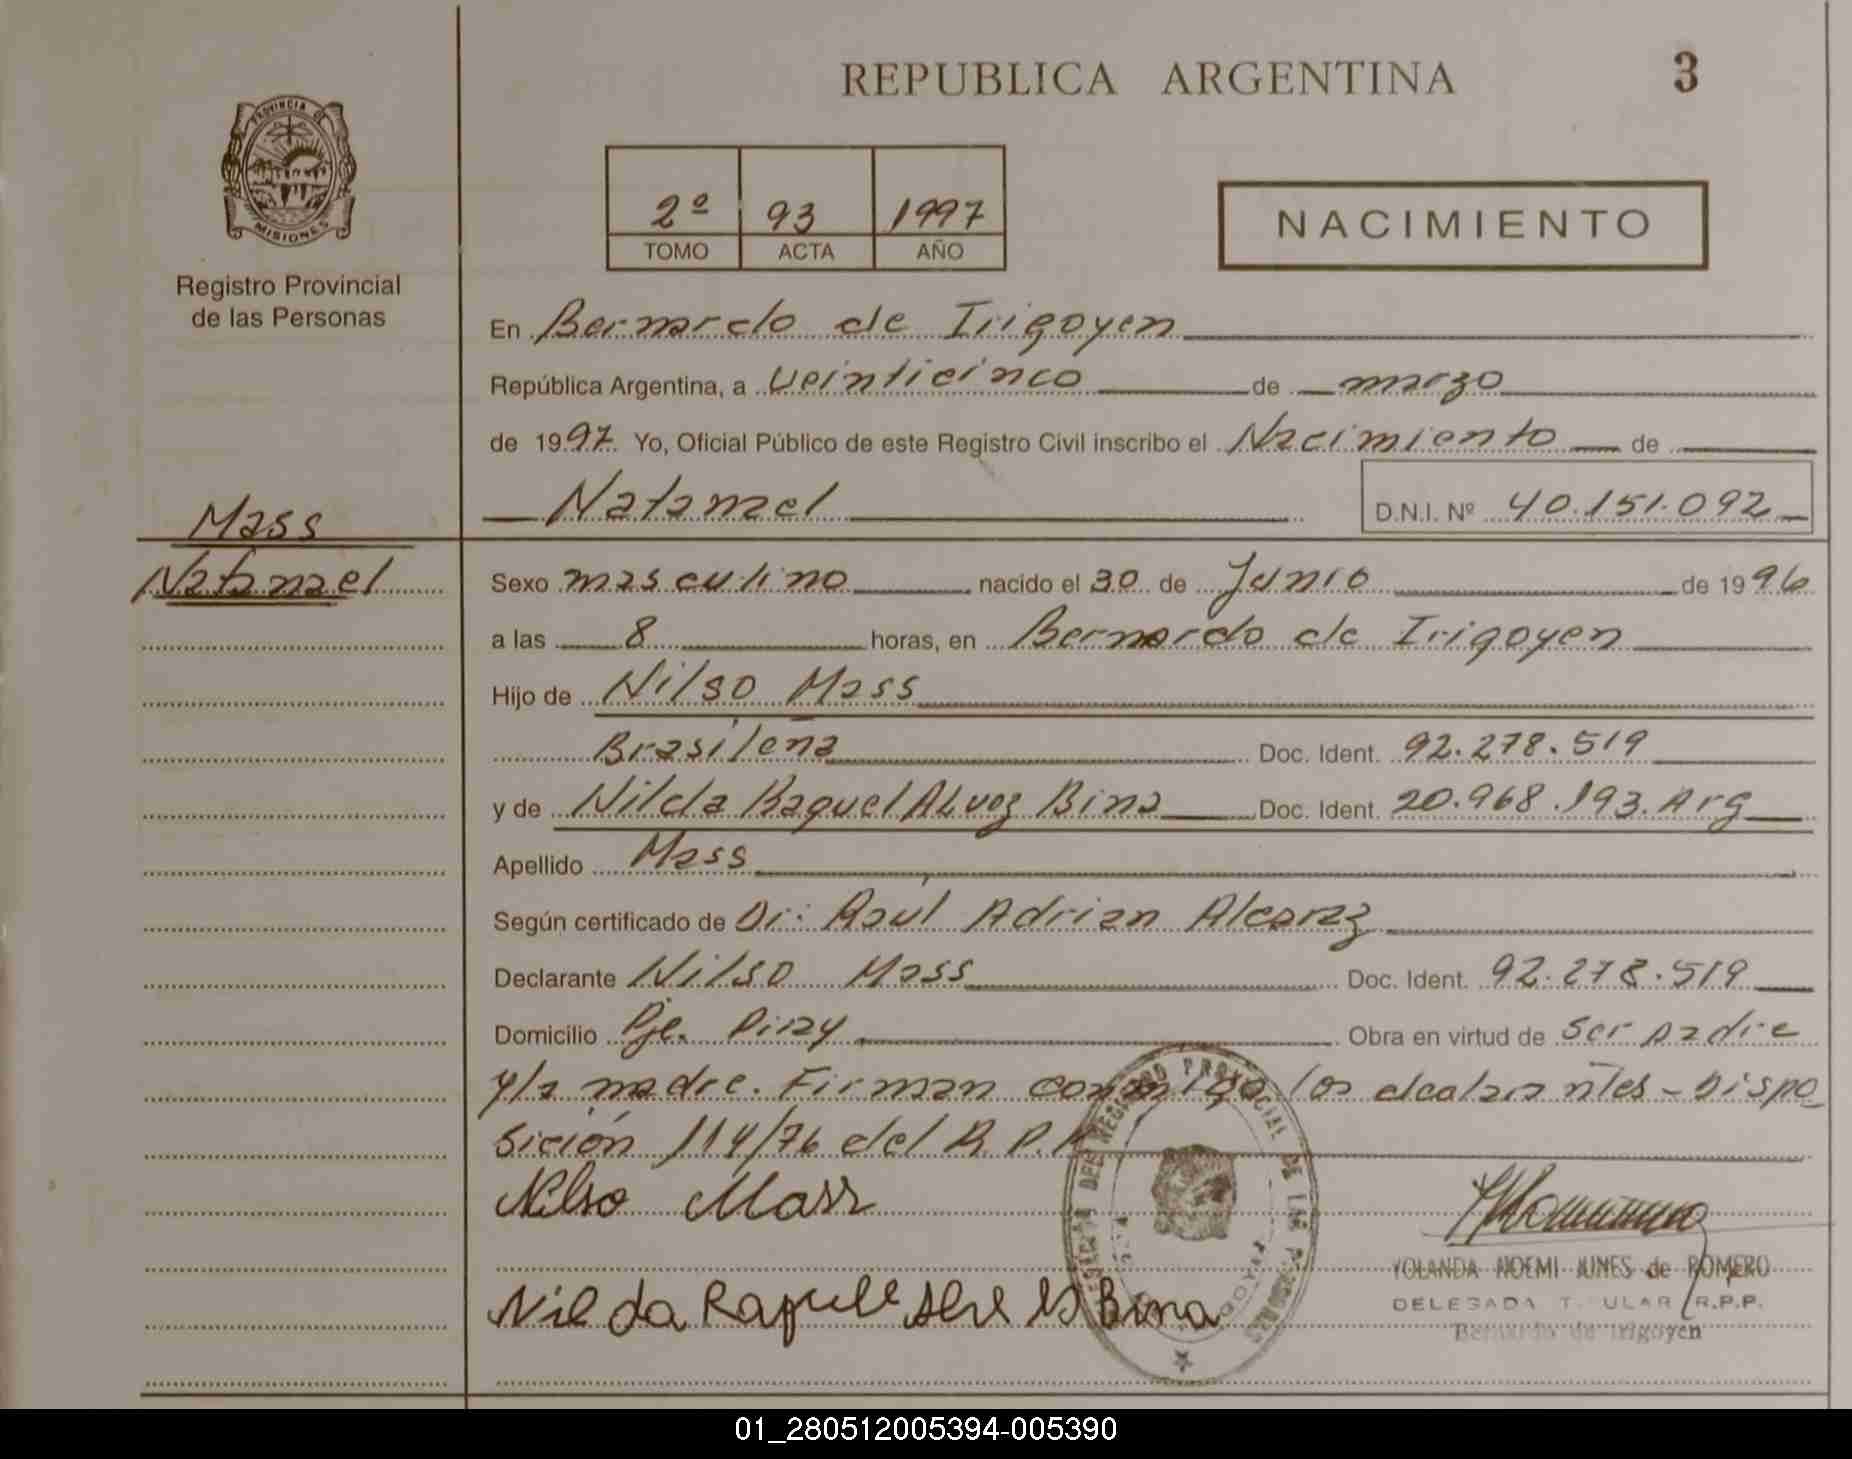 REPUBLICA ARGENTINA
3
PROVINCIA DE
MISIONES
Registro Provincial
de las Personas
2º 93 1997
TOMO ACTA AÑO
NACIMIENTO
En Bernardo de Irigoyen
República Argentina, a veinticinco de marzo
de 1997. Yo, Oficial Público de este Registro Civil inscribo el Nacimiento de
Natanael
D.N.I. Nº 40.151.092
Mass
Natanael
Sexo masculino nacido el 30 de Junio de 1996
a las 8 horas, en Bernardo de Irigoyen
Hijo de Nilso Mass
Brasileña Doc. Ident. 92.278.519
y de Nilda Raquel Alvez Bina Doc. Ident. 20.968.193. Arg
Apellido Mass
Según certificado de Dr: Raúl Adrian Alcaraz
Declarante Nilso Mass Doc. Ident. 92.278.519
Domicilio Pje. Piray Obra en virtud de ser padre
y la madre. Firman conmigo los declarantes - Dispo-
sición 114/76 del R.P.P.
Nilso Mass
Nilda Raquel Alvez Bina
YOLANDA NOEMI JUNES de ROMERO
DELEGADA TITULAR R.P.P.
Bernardo de Irigoyen
01_280512005394-005390